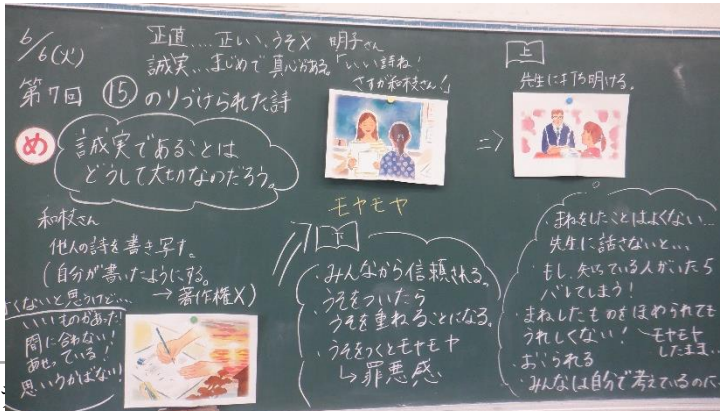 6/6(火)
第7回 ⑮のりづけられた詩
正直….正しい、うそX
誠実…まじめで真心がある。
明子さん
「いい詩ね!
さすが和枝さん!」
め
誠実であることは
どうして大切なのだろう。
和枝さん
他人の詩を書き写す。
(自分が書いたようにする。
→著作権X)
くないと思うけど…
いいものがあった!
間に合わない!
あせっている!
思いうかばない!
モヤモヤ
下
・みんなから信頼される。
・うそをついたら
うそを重ねることになる。
・うそをつくとモヤモヤ
↳罪悪感
⇒
上
先生に打ち明ける。
・まねをしたことはよくない…
先生に話さないと…
・もし、知っている人がいたら
バレてしまう!
・まねしたものをほめられても
うれしくない!
モヤモヤ
したまま…
・おこられる
・みんなは自分で考えているのに